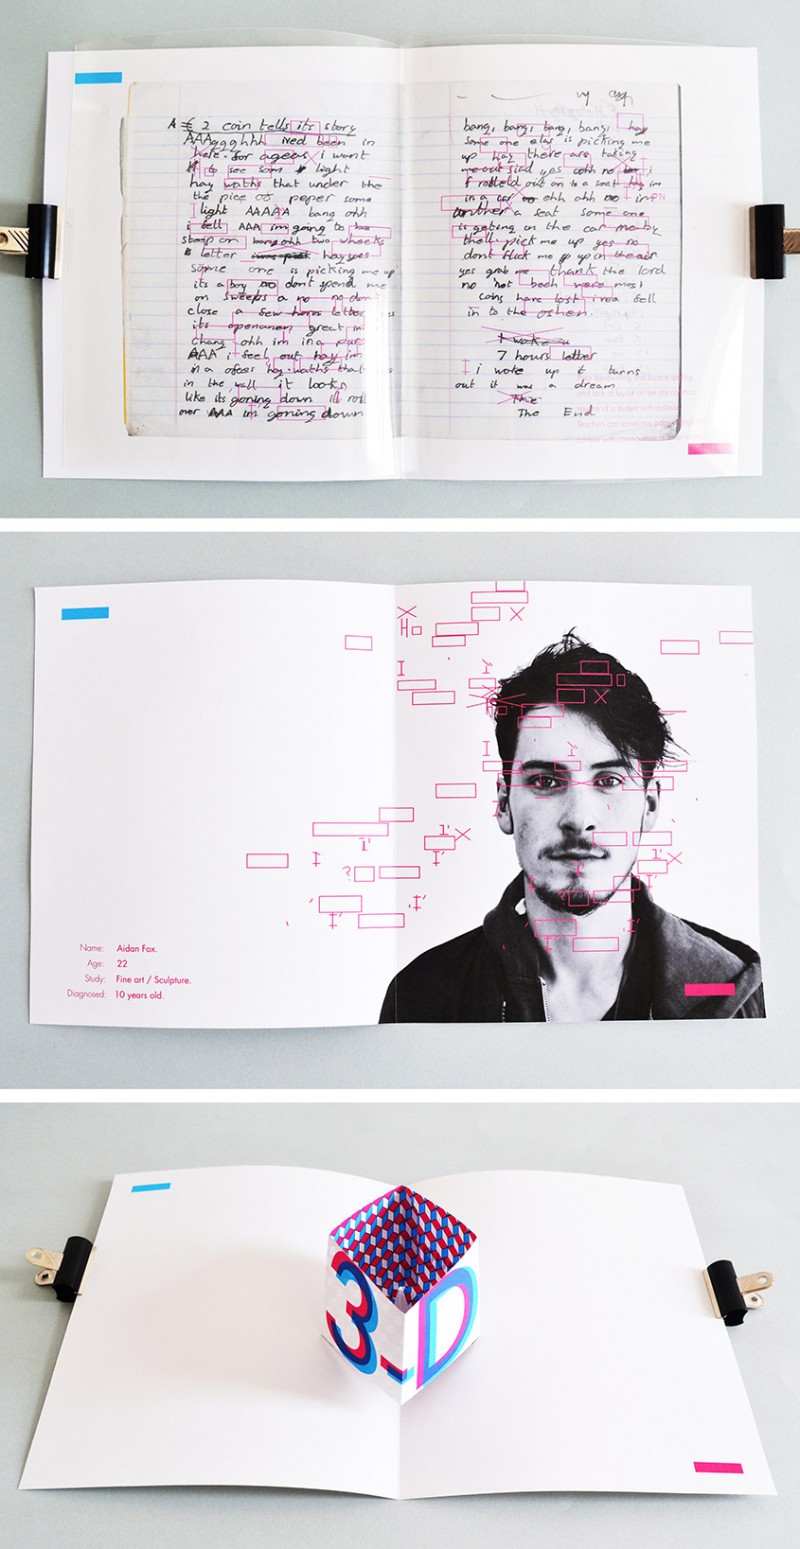 A € 2 coin tells its story
AAAggghhh ived been in
here for ageeas i want
to see som light
hay waths that under the
the pice of peper some
light AAAAA bang ohh
i fell AAA im going to be
steep on bang ohh two wheeks
letter hayyes
some one is picking me up
its a boy no dont spend me
on sweeps a no no dont
close a few horns letter
its openanen great im
chang ohh im in a pure
AAA i feel out hay im
in a ofees hay waths that
in the wall it looks
like its goning down ill roll
over AAA im goning down
my
bang, bang, bang, bang, hay
some one elas is picking me
up hay there are taking
me out find yes ohh no i
f rolleld out on to a seat hay im
in a car ohh ahh no im
another a seat some one
is geting in the car me by
thell pick me up yes no
dont flick me go up in the air
yes grab me thank the lord
no not been were most
coins have lost ivea fell
in to the oshen
I woke u
7 hours letter
i woke up it turns
out it was a dream
The
The End
Name: Aidan Fox.
Age: 22
Study: Fine art / Sculpture.
Diagnosed: 10 years old.
3-D